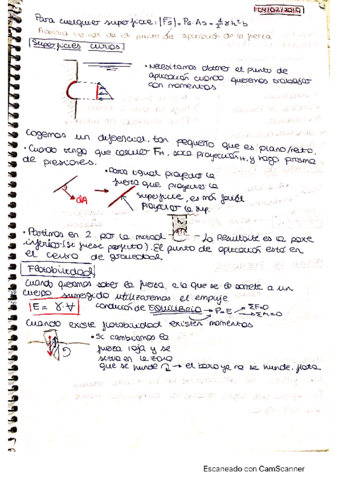 04/02/2020
Para cualquier superficie: |Fs| = Ps·As = ½γh²·b
de el punto de aplicación de la fuerza
Superficies curvas
• Necesitamos obtener el punto de
aplicación cuando queremos trabajar
con momentos
Cogemos un diferencial, tan pequeño que es plano/recto.
• Cuando tengo que calcular FH, saco proyección H, y hago prisma
de presiones.
• Para igual proyectar la
fuerza que proyectar la
superficie, es más fácil
proyectar la sup.
dA
h
• Partimos en 2 por la mitad
La Resultante es la parte
inferior (si fuese perfecto). El punto de aplicación está en
el centro de gravedad.
Flotabilidad
Cuando queremos saber la fuerza a la que se somete a un
cuerpo sumergido utilizaremos el empuje
E = γ·V
condición de Equilibrio → P=E
ΣF=0
ΣM=0
Cuando existe flotabilidad existen momentos
• Si cambiamos la
fuerza roja y se
sitúa en la zona
que se hunde → el barco ya no se hunde, flota
Escaneado con CamScanner